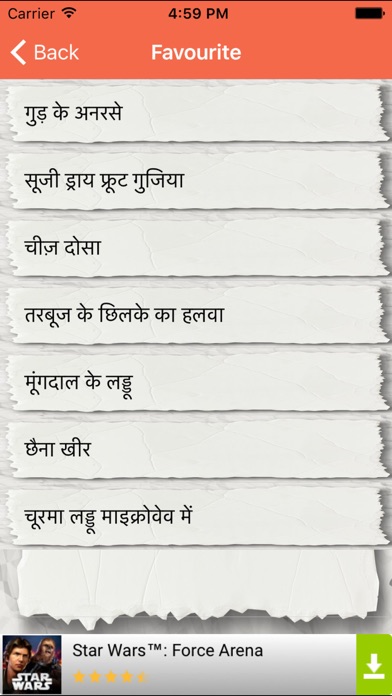 Carrier 4:59 PM
Back Favourite
गुड़ के अनरसे
सूजी ड्राय फ्रूट गुजिया
चीज़ दोसा
तरबूज के छिलके का हलवा
मूंगदाल के लड्डू
छैना खीर
चूरमा लड्डू माइक्रोवेव में
Star Wars™: Force Arena
STAR
WARS